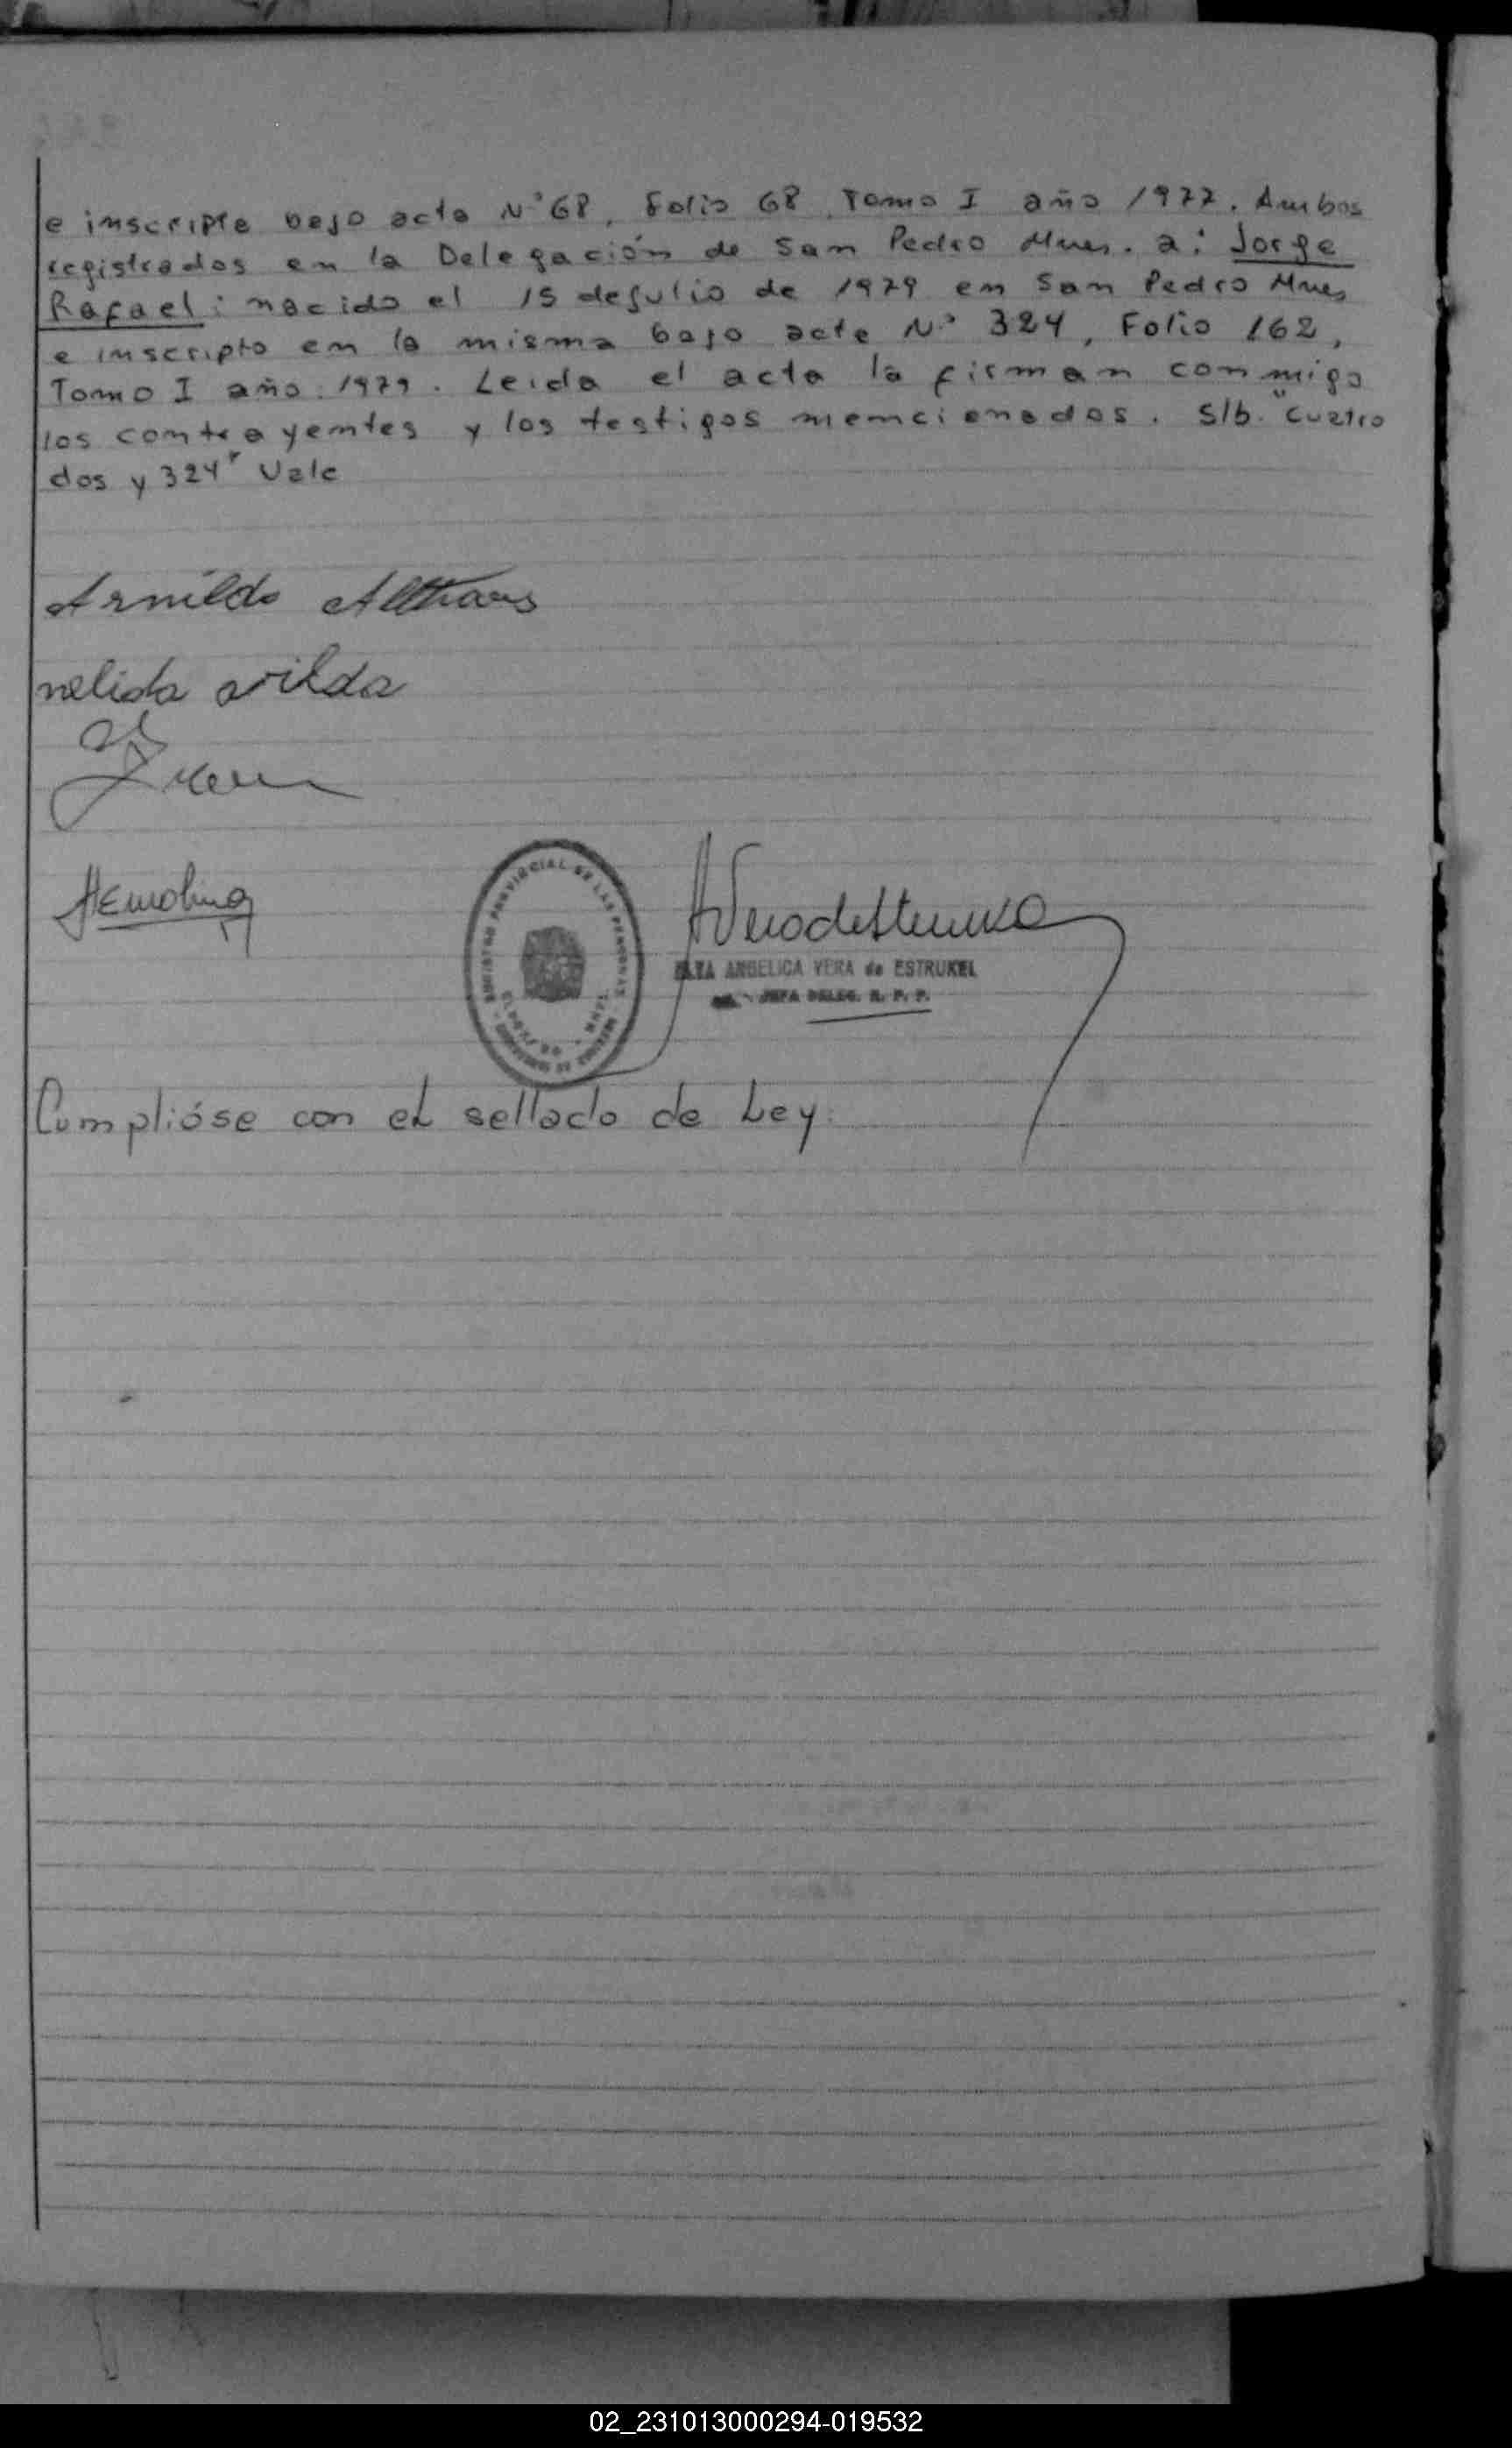 e inscripta bajo acta N° 68, Folio 68, Tomo I año 1977. Ambos
registrados en la Delegación de San Pedro Mnes. a: Jorge
Rafael: nacido el 15 de julio de 1979 en San Pedro Mnes
e inscripto en la misma bajo acta N° 324, Folio 162,
Tomo I año: 1979. Leida el acta la firman conmigo
los contrayentes y los testigos mencionados. S/b. "cuatro
dos y 324" Vale
Arnildo Althaus
nelida vilda
REGISTRO PROVINCIAL DE LAS PERSONAS
ANGELICA VERA de ESTRUKEL
JEFA DELEG. R. P. P.
Cumplióse con el sellado de Ley.
02_231013000294-019532